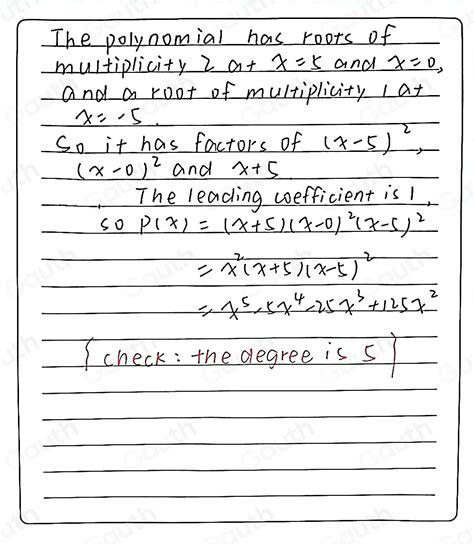 The polynomial has roots of
multiplicity 2 at x=5 and x=0,
and a root of multiplicity 1 at
x=-5.
So it has factors of (x-5)²,
(x-0)² and x+5
The leading coefficient is 1,
so P(x) = (x+5)(x-0)²(x-5)²
= x²(x+5)(x-5)²
= x⁵-5x⁴-25x³+125x²
{check: the degree is 5}
Gauth